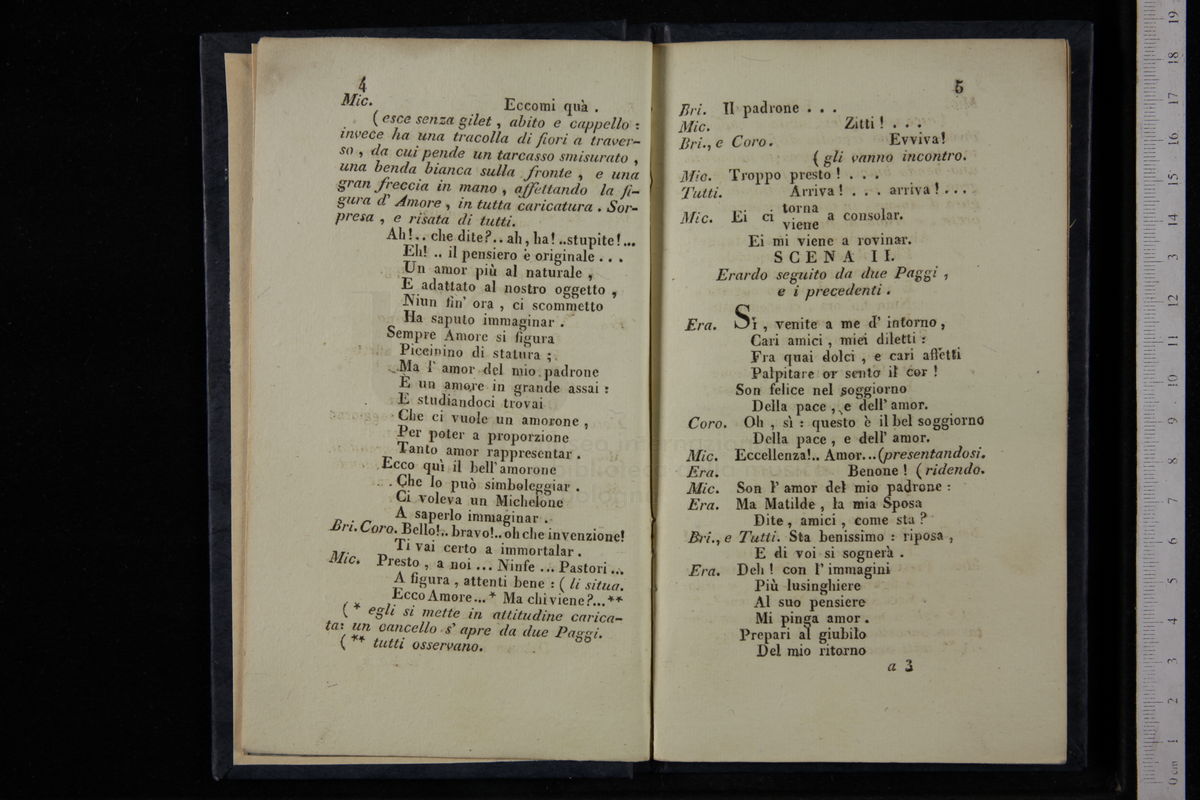 4
Mic. Eccomi quà .
( esce senza gilet , abito e cappello :
invece ha una tracolla di fiori a traver-
so , da cui pende un tarcasso smisurato ,
una benda bianca sulla fronte , e una
gran freccia in mano , affettando la fi-
gura d' Amore , in tutta caricatura . Sor-
presa , e risata di tutti.
Ah!.. che dite?.. ah, ha! ..stupite!...
Eh! .. il pensiero è originale . . .
Un amor più al naturale ,
E adattato al nostro oggetto ,
Niun fin' ora , ci scommetto
Ha saputo immaginar .
Sempre Amore si figura
Piccinino di statura ;
Ma l' amor del mio padrone
È un amore in grande assai :
E studiandoci trovai
Che ci vuole un amorone ,
Per poter a proporzione
Tanto amor rappresentar .
Ecco quì il bell' amorone
Che lo può simboleggiar .
Ci voleva un Michelone
A saperlo immaginar .
Bri. Coro. Bello!.. bravo!.. oh che invenzione!
Ti vai certo a immortalar .
Mic. Presto , a noi ... Ninfe ... Pastori ...
A figura , attenti bene : ( li situa.
Ecco Amore... * Ma chi viene?...**
( * egli si mette in attitudine carica-
ta: un cancello s' apre da due Paggi.
( ** tutti osservano.
5
Bri. Il padrone . . .
Mic. Zitti ! . . .
Bri., e Coro. Evviva!
( gli vanno incontro.
Mic. Troppo presto ! . . .
Tutti. Arriva ! . . . arriva ! . . .
Mic. Ei ci torna
viene a consolar.
Ei mi viene a rovinar.
SCENA II.
Erardo seguito da due Paggi ,
e i precedenti .
Era. Sì , venite a me d' intorno ,
Cari amici , miei diletti :
Fra quai dolci , e cari affetti
Palpitare or sento il cor !
Son felice nel soggiorno
Della pace , e dell' amor.
Coro. Oh , sì : questo è il bel soggiorno
Della pace , e dell' amor.
Mic. Eccellenza!.. Amor... (presentandosi.
Era. Benone ! ( ridendo.
Mic. Son l' amor del mio padrone :
Era. Ma Matilde , la mia Sposa
Dite , amici , come sta ?
Bri., e Tutti. Sta benissimo : riposa ,
E di voi si sognerà .
Era. Deh ! con l' immagini
Più lusinghiere
Al suo pensiere
Mi pinga amor .
Prepari al giubilo
Del mio ritorno
a 3